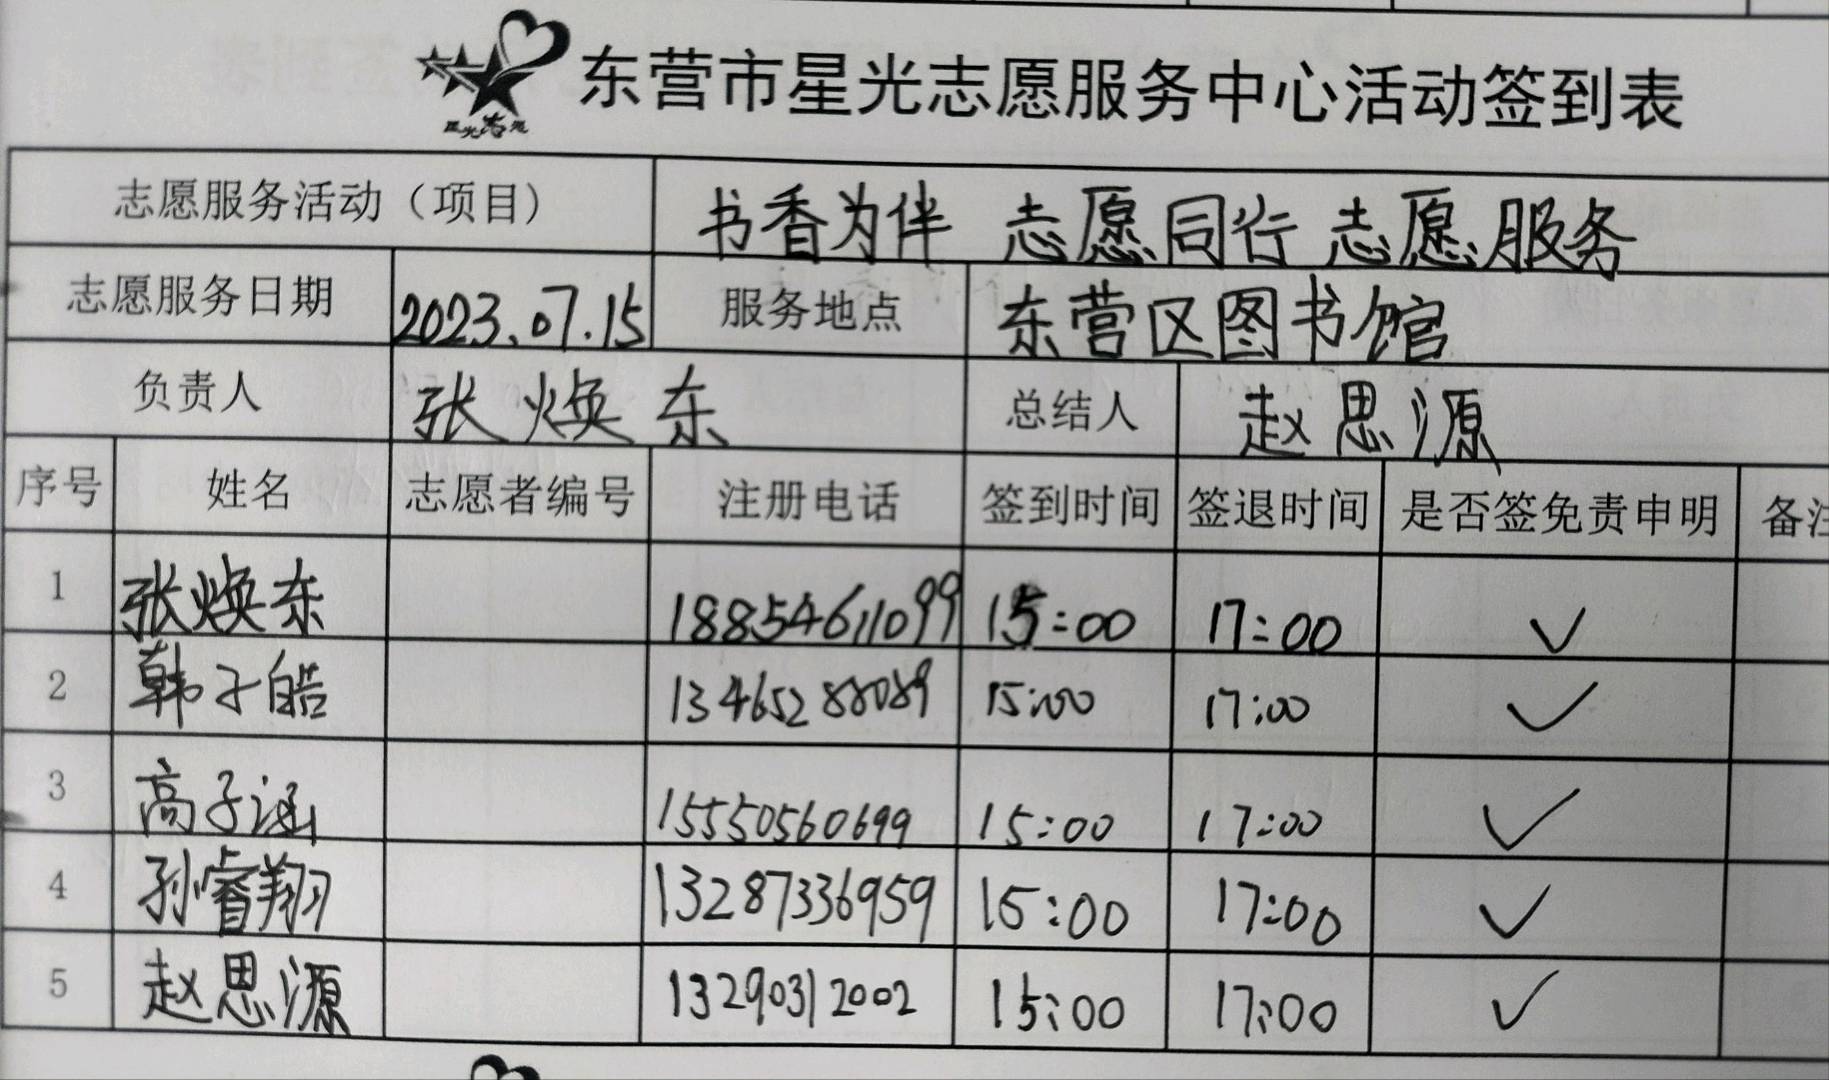 星光志愿
东营市星光志愿服务中心活动签到表
志愿服务活动（项目） 书香为伴 志愿同行 志愿服务
志愿服务日期 2023.07.15 服务地点 东营区图书馆
负责人 张焕东 总结人 赵思源
序号 姓名 志愿者编号 注册电话 签到时间 签退时间 是否签免责申明 备注
1 张焕东 18854611099 15:00 17:00 ✓
2 韩子皓 13465288089 15:00 17:00 ✓
3 高子涵 15550560699 15:00 17:00 ✓
4 孙睿翔 13287336959 15:00 17:00 ✓
5 赵思源 13290312002 15:00 17:00 ✓